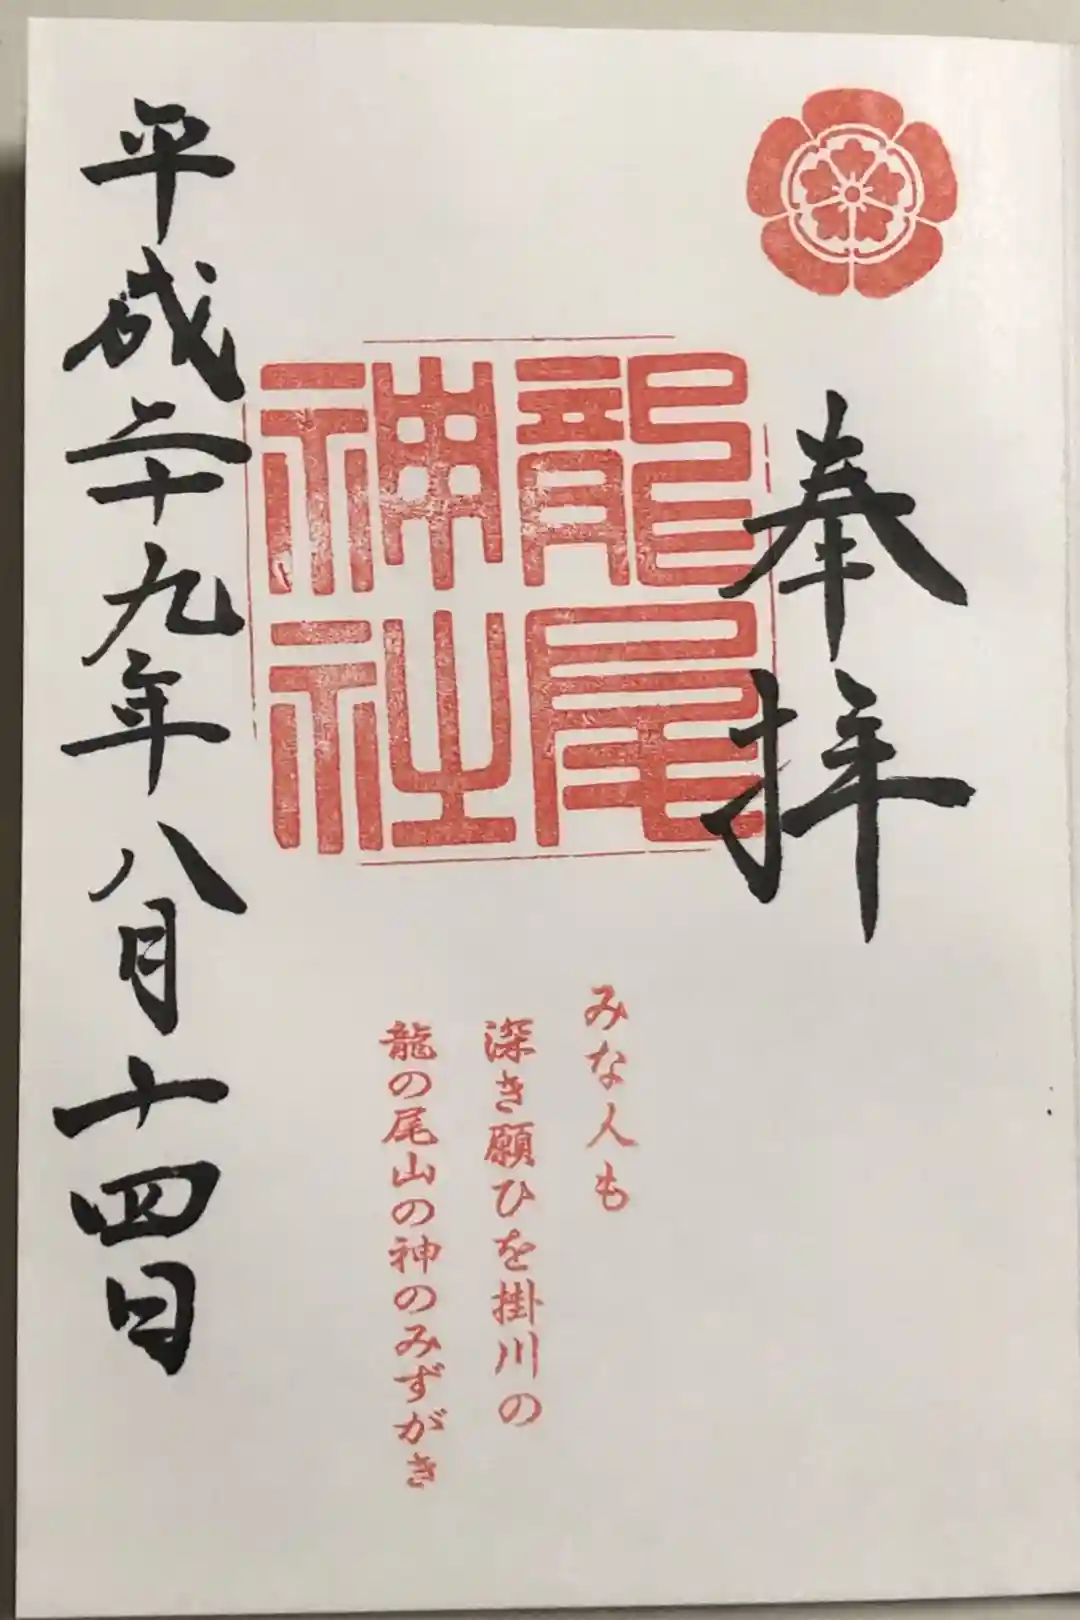 奉拝
龍尾神社
みな人も
深き願ひを掛川の
龍の尾山の神のみずがき
平成二十九年八月十四日